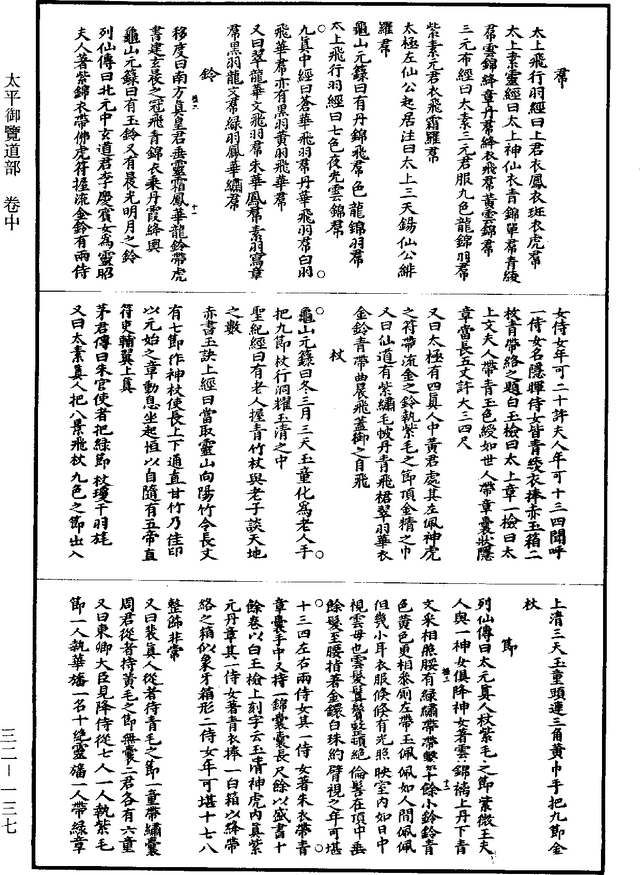 太平御覽道部 卷中
三二—一三七
羣
太上飛行羽經曰上君衣鳳衣斑衣虎羣
太上素靈經曰太上神仙衣青錦單羣青綾
羣雲錦絳章丹羣絳衣飛羣黃雲錦羣
三元布經曰太素三元君服九色龍錦羽羣
紫素元君衣飛霜羅羣
太極左仙公起居注曰太上三天錫仙公緋
羅羣
龜山元籙曰有丹錦飛羣色龍錦羽羣
太上飛行羽經曰七色夜光雲錦羣
九真中經曰蒼華飛羽羣丹華飛羽羣白羽
飛華羣亦有黑羽黃羽飛華羣
又曰翠龍華文飛羽羣朱華鳳羣素羽寫章
羣黑羽龍文羣綠羽鳳華繡羣
鈴
移度曰南方真皇君垂靈霜鳳華龍鈴帶虎
書建玄晨之冠飛青錦衣乘丹霞絳輿
龜山元籙曰有玉鈴又有晨光明月之鈴
列仙傳曰北元中玄道君李慶賓女為靈昭
夫人著紫錦衣帶佛虎符握流金鈴有兩侍
女侍女年可二十許夫人年可十三四聞呼
一侍女名隱暉侍女皆青綾衣捧赤玉箱二
枚青帶絡之題白玉檢曰太上章一檢曰太
上文夫人帶青玉色綬如世人帶章囊狀隱
章當長五丈許大三四尺
又曰太極有四真人中黃君處其左佩神虎
之符帶流金之鈴執紫毛之節頂金精之巾
又曰仙道有紫繡毛帔丹青飛裙翠羽華衣
金鈴青帶曲晨飛蓋御之自飛
杖
龜山元籙曰冬三月三天玉童化為老人手
把九節杖行洞耀玉清之中
聖紀經曰有老人握青竹杖與老子談天地
之數
赤書玉訣上經曰當取靈山向陽竹令長丈
有七節作神杖使長上下通直甘竹乃佳印
以元始之章動息坐起恒以自隨有五帝直
符吏輔翼上真
茅君傳曰朱官使者把綠節杖瓊干羽旄
又曰太素真人把八景飛杖九色之節出入
上清三天玉童頭運三角黃巾手把九節金
杖
節
列仙傳曰太元真人杖紫毛之節紫微王夫
人與一神女俱降神女著雲錦襡上丹下青
文采相照腰有綠繡帶帶繫十餘小鈴鈴青
色黃色更相參廁左帶玉佩佩如人間佩佩
但幾小耳衣服倏倏有光照映室內如日中
視雲母也雲髮鬒鬢整頓絕倫髻在頂中垂
餘髮至腰指著金鐶白珠約臂視之年可堪
十三四左右兩侍女其一侍女著朱衣帶青
章囊手中又持一錦囊囊長尺餘以盛書十
餘卷以白玉檢上刻字云玉清神虎內真紫
元丹章其一侍女著青衣捧一白箱以絳帶
絡之箱似象牙箱形二侍女年可堪十七八
整飾非常
又曰裴真人從者持青毛之節一童帶繡囊
周君從者持黃毛之節無囊二君各有六童
又曰東卿大臣見降侍從七人一人執紫毛
節一人執華旛一名十絕靈旛一人帶綠章